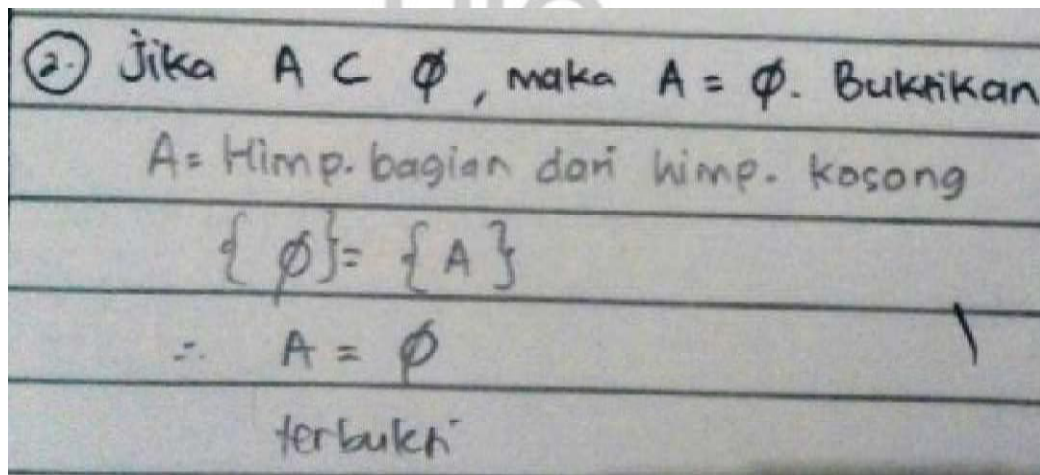 2. Jika A ⊂ ∅, maka A = ∅. Buktikan
A = Himp. bagian dari himp. kosong
{ ∅ } = { A }
∴ A = ∅
terbukti